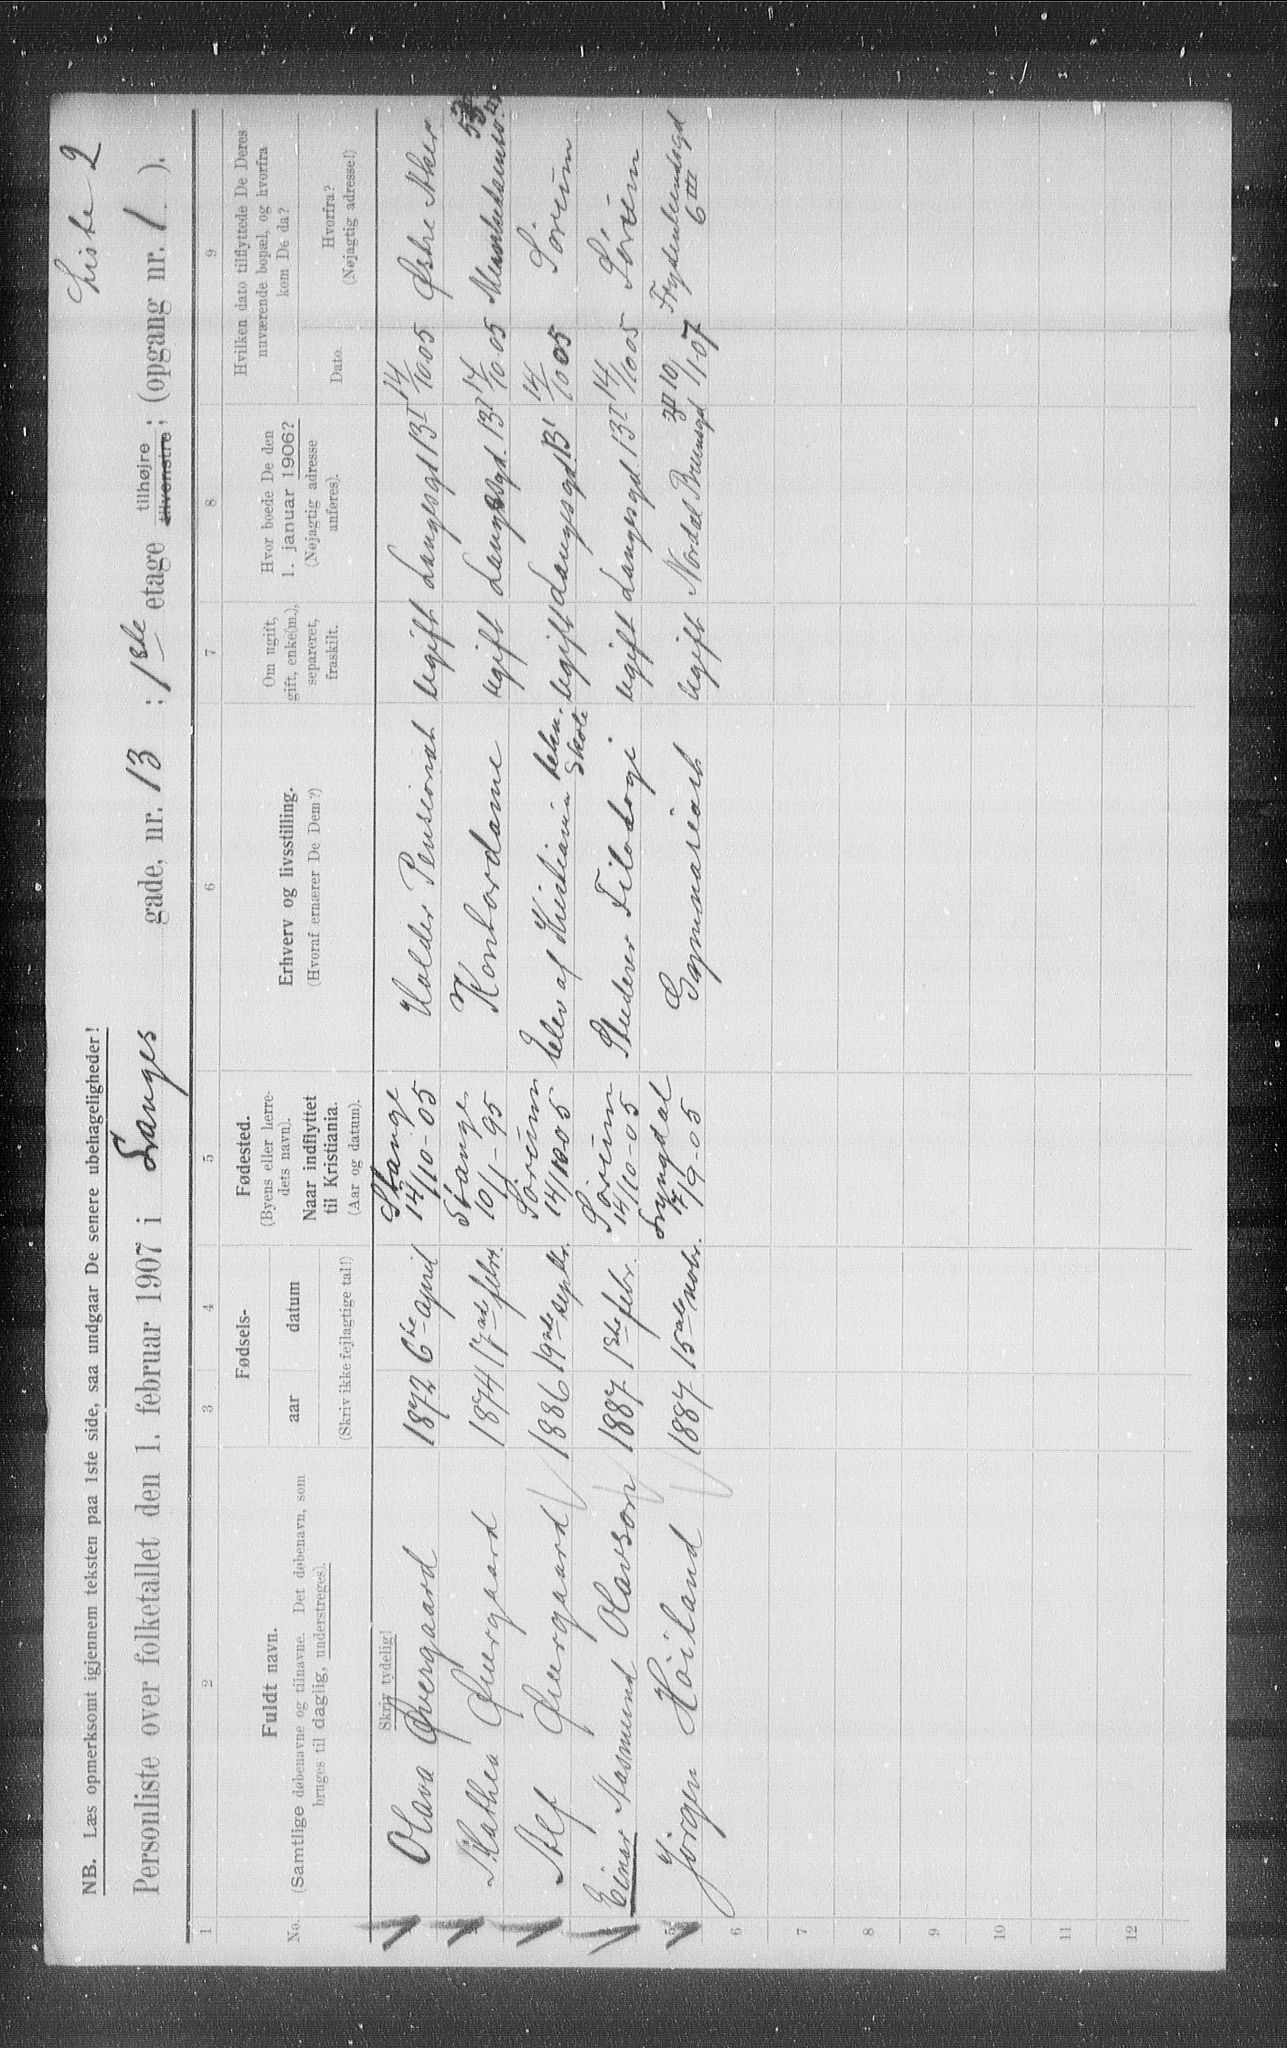 Liste 2
NB. Læs opmerksomt igjennem teksten paa 1ste side, saa undgaar De senere ubehageligheder!
Personliste over folketallet den 1. februar 1907 i Langes gade, nr. 13; 1ste etage tilhøjre tilvenstre; (opgang nr. 1).
1 2 3 4 5 6 7 8 9
No. Fuldt navn. (Samtlige døbenavne og tilnavne. Det døbenavn, som bruges til daglig, understreges).
Fødsels- aar datum (Skriv ikke fejlagtige tal!)
Fødested. (Byens eller herredets navn). Naar indflyttet til Kristiania. (Aar og datum).
Erhverv og livsstilling. (Hvoraf ernærer De Dem?)
Om ugift, gift, enke(m.), separeret, fraskilt.
Hvor boede De den 1. januar 1906? (Nøjagtig adresse anføres).
Hvilken dato tilflyttede De Deres nuværende bopæl, og hvorfra kom De da?
Dato. Hvorfra? (Nøjagtig adresse!)
Skriv tydelig!
Olava Øvergaard 1872 6te april Stange 14/10-05 Holder Pensionat ugift Langesgd 13 I 14/10 05 Østre Aker
Mathea Øvergaard 1874 17de febr. Stange 10/1-95 Kontordame ugift Langesgd. 13 I 14/10 05
Alf Øvergaard 1886 19de septbr. Sørum 14/10 05 Elev af Kristiania tekn. Skole ugift Langesgd. 13 I 14/10 05 Sørum
Einar Aasmund Olavson 1887 1ste febr. Sørum 14/10-05 Studerer Filologi ugift Langesgd. 13 I 14/10 05 Sørum
5 Jørgen Høiland 1887 15de novbr. Lyngdal 17/9-05 Gymnasiast ugift Nordal Brunsgd 10/1-07 Frydenlundsgd 6 III
6
7
8
9
10
11
12